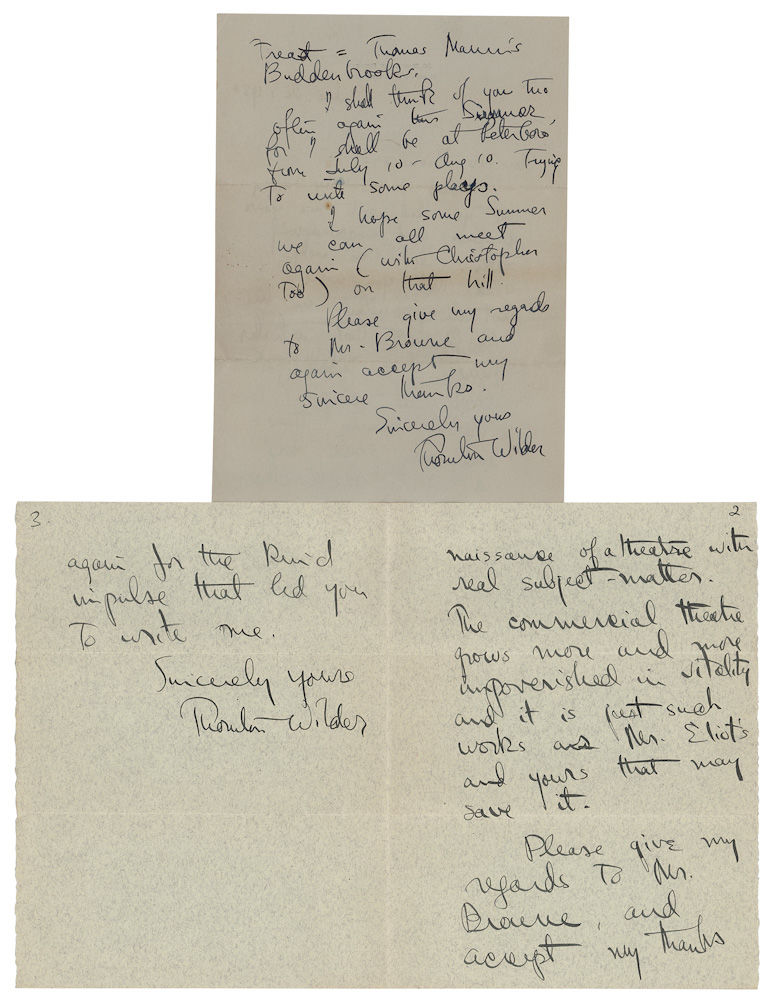 Treat = Thomas Mann's
Buddenbrooks.
I shall think of you two
often again this Summer,
for I shall be at Peterboro,
from July 10 - Aug 10. Trying
To write some plays.
I hope some Summer
we can all meet
again (with Christopher
Too) on that hill.
Please give my regards
to Mrs. Browne and
again accept my
sincere thanks.
Sincerely yours
Thornton Wilder
2
naissance of a theatre with
real subject-matter.
The commercial theatre
grows more and more
impoverished in vitality
and it is just such
works as Mr. Eliot's
and yours that may
save it.
Please give my
regards To Mrs.
Browne, and
accept my thanks
3.
again for the kind
impulse that led you
To write me.
Sincerely yours
Thornton Wilder